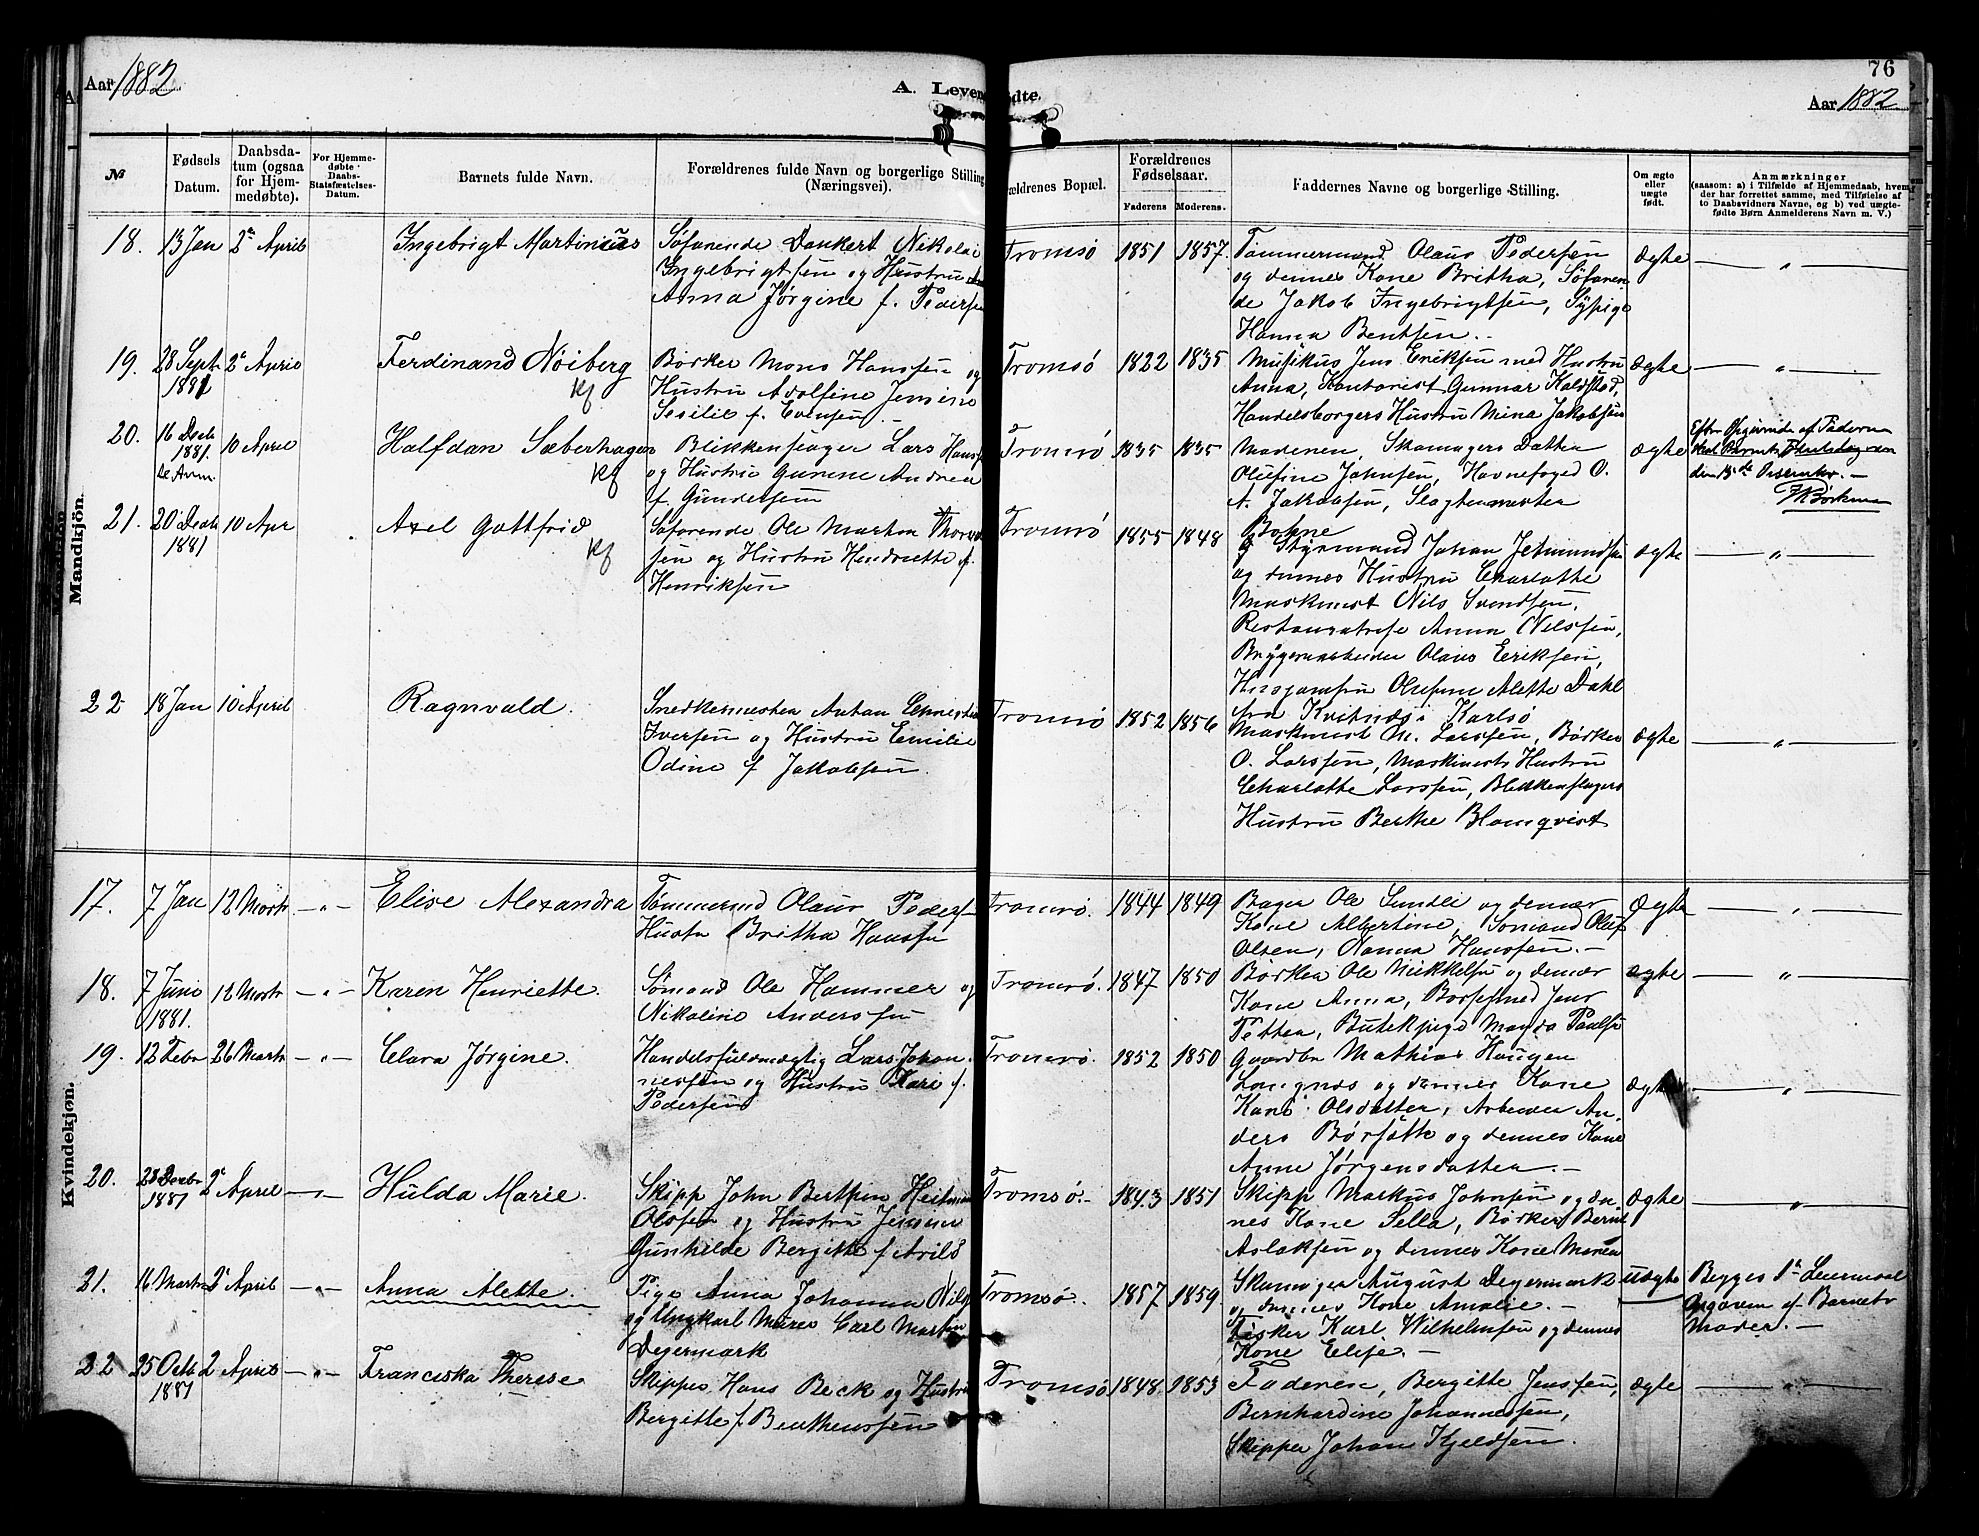 Aar 1882
A. Levendødte.
76
Aar 1882
№
Fødsels Datum.
Daabsdatum (ogsaa for Hjemmedøbte).
For Hjemmedøbte Daabs-Statsfæstelses-Datum.
Barnets fulde Navn.
Forældrenes fulde Navn og borgerlige Stilling (Næringsvei).
ældrenes Bopæl.
Forældrenes Fødselsaar.
Faderens
Moderens.
Faddernes Navne og borgerlige Stilling.
Om ægte eller uægte født.
Anmærkninger
(saasom: a) i Tilfælde af Hjemmedaab, hvem der har forrettet samme, med Tilføielse af to Daabsvidners Navne, og b) ved uægtefødte Børn Anmelderens Navn m. V.)
Mandkjön.
18. 13 Jan 2den April Ingebrigt Martinius
Søfarende Dankert Nikolai
Ingebrigtsen og Hustru
Anna Jørgine f. Pedersen
Tromsø 1851 1857.
Tømmermand Olaus Pedersen
og dennes Kone Britha, Søfaren-
de Jakob Ingebrigtsen, Sypige
Hanna Bentsen.
ægte — " —
19. 28 Sept 1881 2den April Ferdinand Nöiberg
Bødker Mons Hansen og
Hustru Adolfine Jensine
Sesilie f. Evensen
Tromsø 1822 1835
Musikus Jens Eriksen med Hustru
Anna, Kontorist Gunnar Koldsted,
Handelsborgers Hustru Mina Jakobsen
ægte — " —
20. 16 Decb 1881. 10 April Halfdan Sæberhagen
Blikkenslager Lars Hans
og Hustru Gurine Andrea
f. Gundersen
Tromsø 1835 1835
Moderen, Skomagers Datter
Olufine Johnsen, Havnefoged O.
A. Jakobsen, Slagtermester
Bohne
ægte
Efter Opgivende af Faderen
skal Barnets Fødselsdag være
den 15de Desember. —
21. 20 Decb 1881 10 Apr Axel Gottfrid
Søfarende Ole Martin
sen og Hustru Hendriette f.
Henriksen
Tromsø 1855 1848
Styrmand Johan
og dennes Hustru Charlotte
Maskinist Nils Svendsen,
Anna Nilssen,
Bryggeriarbeider Olaus Eriksen,
Husjomfru Olufine Alette Dahl
fra Kvitnæs i Karlsö
ægte — " —
22 18 Jan 10 April Ragnvald.
Snedkermester Anton
Iversen og Hustru Emilie
Odine f Jakobsen.
Tromsø 1852 1856
Maskinist M. Larssen, Bødker
O. Larssen, Maskinists Hustru
Charlotte Larssen, Blikkenslagers
Hustru Berthe Blomqvist
ægte — " —
Kvindekjøn.
17. 7 Jan 12 Marts — " — Elise Alexandra
Tømmermd Olaus Peders
Hustr Britha Hanssn
Tromsø. 1844 1849
Bager Ole Sundli og dennes
Kone Albertine, Sømand Oluf
Olsen, Nanna Hanssen. —
ægte — " —
18. 7 Juni 1881. 12 Marts — " — Karen Henriette.
Sømand Ole Hammer og
Nikoline Anderssen
Tromsø. 1847 1850
Bødker Ole Mikkelsen og dennes
Kone Anna, Jens
Petter, Butikpige Magda Paulse
ægte — " —
19. 12 Febr 26 Marts — " — Clara Jørgine.
Handelsfuldmægtig Lars Johan-
nessen og Hustru Kari f.
Pedersen
Tromsø. 1852 1850
Gaardbr Mathias Haugen
Langnæs og dennes Kone
Olsdatter, Arbeider An-
ders og dennes Kone
Anne Jørgensdatter. —
ægte — " —
20. 28 Decbr 1881 2den April — " — Hulda Marie.
Skipp John Berthin
Olsen og Hustru
Gunhilde Bergitte f
Tromsø. 1843 1851
Skipp Markus Johnsen og den-
nes Kone Sella, Bødker Bernt
Aslaksen og dennes Kone Maren
ægte "
21. 16 Marts 2den April — " — Anna Alette.
Pige Anna Johanna Nils
og Ungkarl Murer Carl Martin
Degermark
Tromsø. 1857 1859
Skomager August Degermark
og dennes Kone Amalie. —
Fisker Karl Wilhelmsen og dennes
Kone Elise. —
uægte
Begges 1ste Leiermaal
Opgaven af Barnets
Moder. —
22 25 Octb 1881 2 April — " — Franciska Therese
Skipper Hans Beck og Hustru
Bergitte f.
Tromsø 1848 1853
Faderen, Bergitte Jenssen,
Bernhardine Johannesen,
Skipper Johan Kjeldsen.
ægte — " —